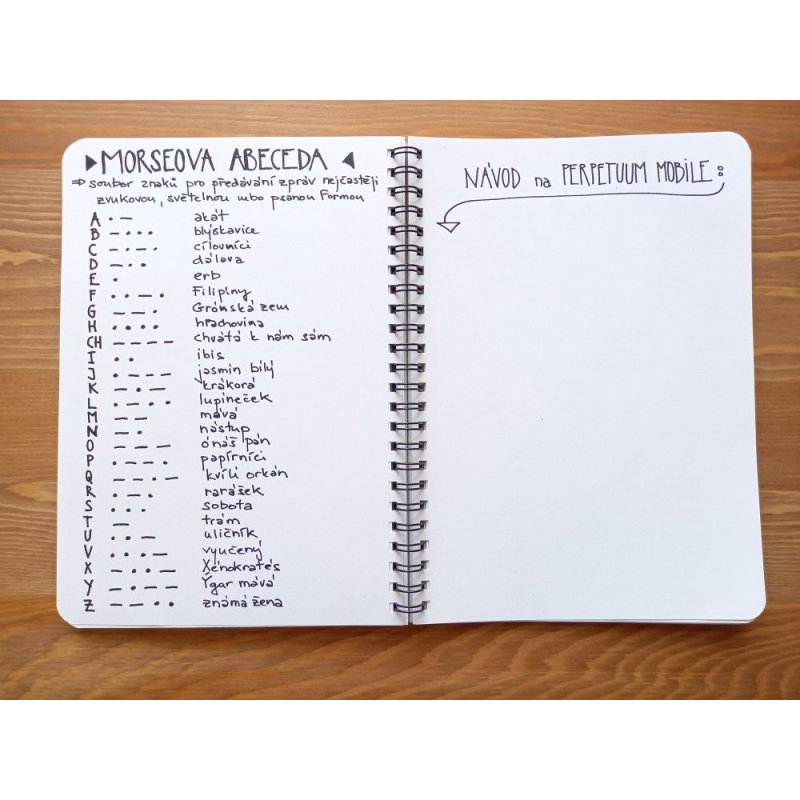 MORSEOVA ABECEDA
⇒ soubor znaků pro předávání zpráv nejčastěji
zvukovou, světelnou nebo psanou formou
A • — akát
B — • • • blýskavice
C — • — • cílovníci
D — • • dálava
E • erb
F • • — • Filipíny
G — — • Grónská zem
H • • • • hrachovina
CH — — — — chvátá k nám sám
I • • ibis
J • — — — jasmín bílý
K — • — krákorá
L • — • • lupíneček
M — — mává
N — • nástup
O — — — ó náš pán
P • — — • papírníci
Q — — • — kvílí orkán
R • — • rarášek
S • • • sobota
T — trám
U • • — uličník
V • • • — vyučený
X — • • — Xénokratés
Y — • — — Ýgar mává
Z — — • • známá žena
NÁVOD na PERPETUUM MOBILE: